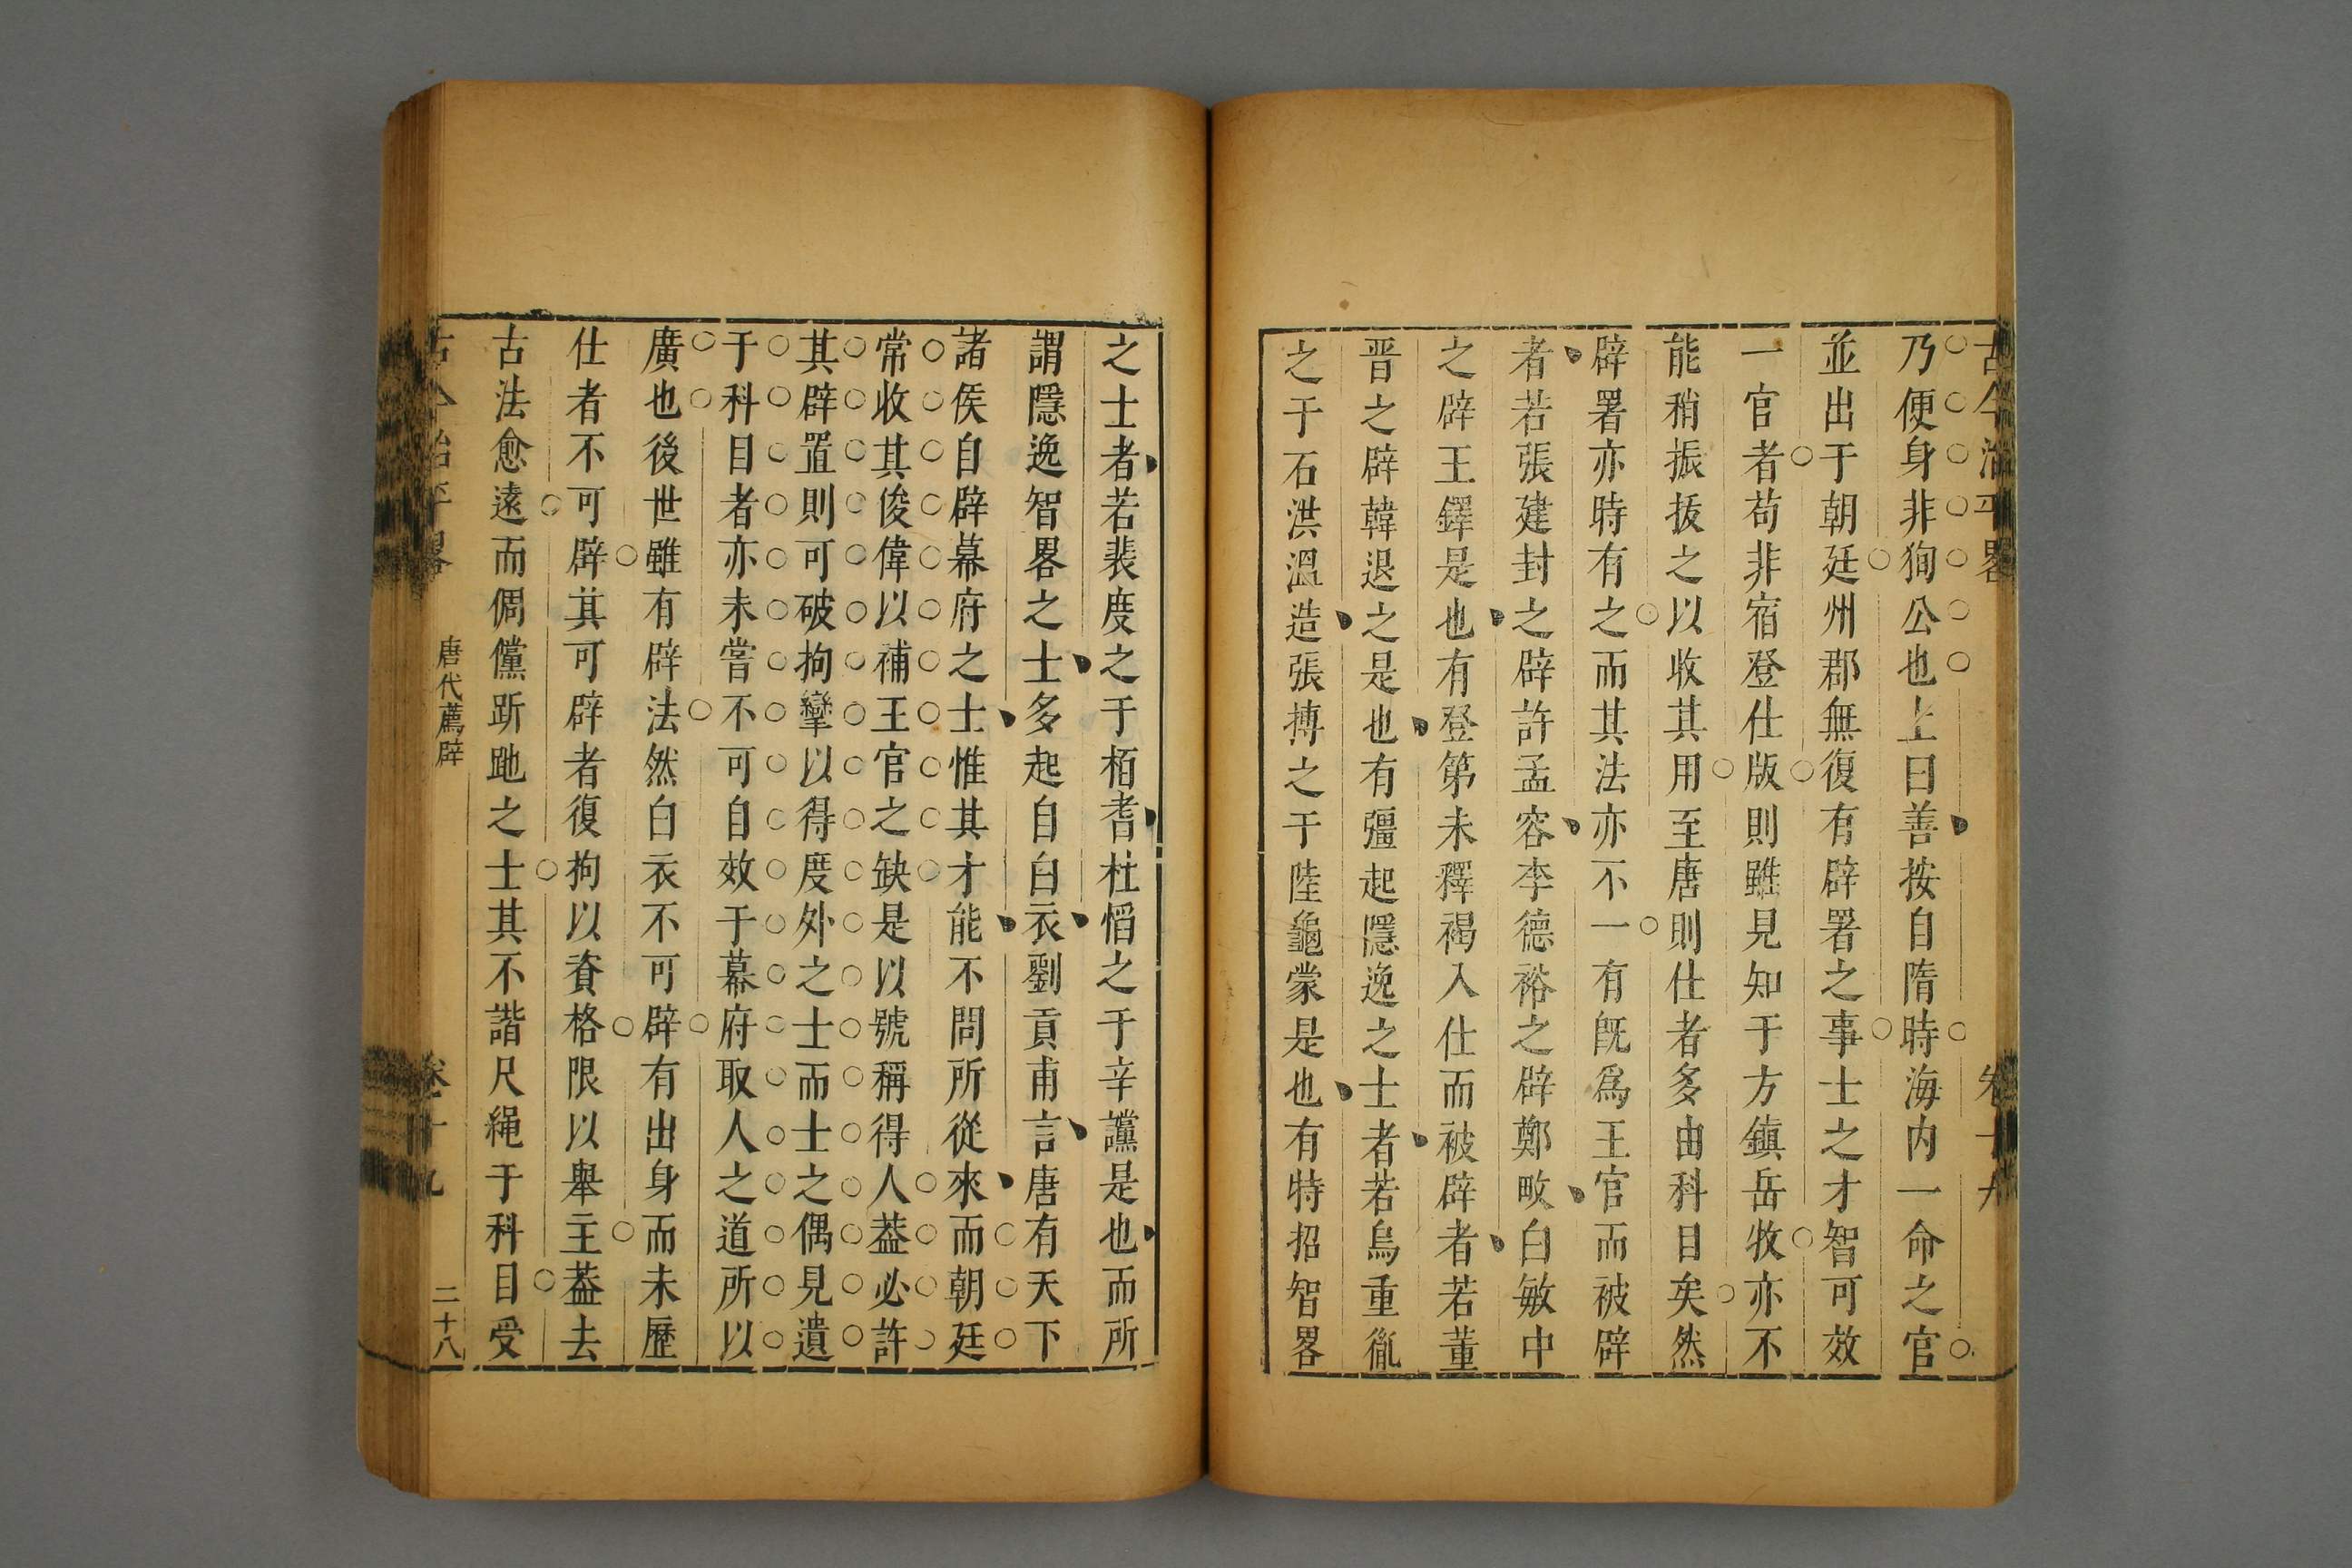 古今治平畧 卷十九
乃便身非狥公也上曰善按自隋時海内一命之官
並出于朝廷州郡無復有辟署之事士之才智可效
一官者苟非宿登仕版則雖見知于方鎮岳牧亦不
能稍振拔之以收其用至唐則仕者多由科目矣然
辟署亦時有之而其法亦不一有旣爲王官而被辟
者若張建封之辟許孟容李德裕之辟鄭畋白敏中
之辟王鐸是也有登第未釋褐入仕而被辟者若董
晋之辟韓退之是也有彊起隱逸之士者若烏重胤
之于石洪溫造張搏之于陸龜蒙是也有特招智畧
之士者若裴度之于栢耆杜慆之于辛讜是也而所
謂隱逸智畧之士多起自白衣劉貢甫言唐有天下
諸侯自辟幕府之士惟其才能不問所從來而朝廷
常收其俊偉以補王官之缺是以號稱得人葢必許
其辟置則可破拘攣以得度外之士而士之偶見遺
于科目者亦未嘗不可自效于幕府取人之道所以
廣也後世雖有辟法然白衣不可辟有出身而未歷
仕者不可辟其可辟者復拘以資格限以舉主葢去
古法愈遠而倜儻跅踸之士其不諧尺繩于科目受
古今治平畧 唐代薦辟 卷十九 二十八